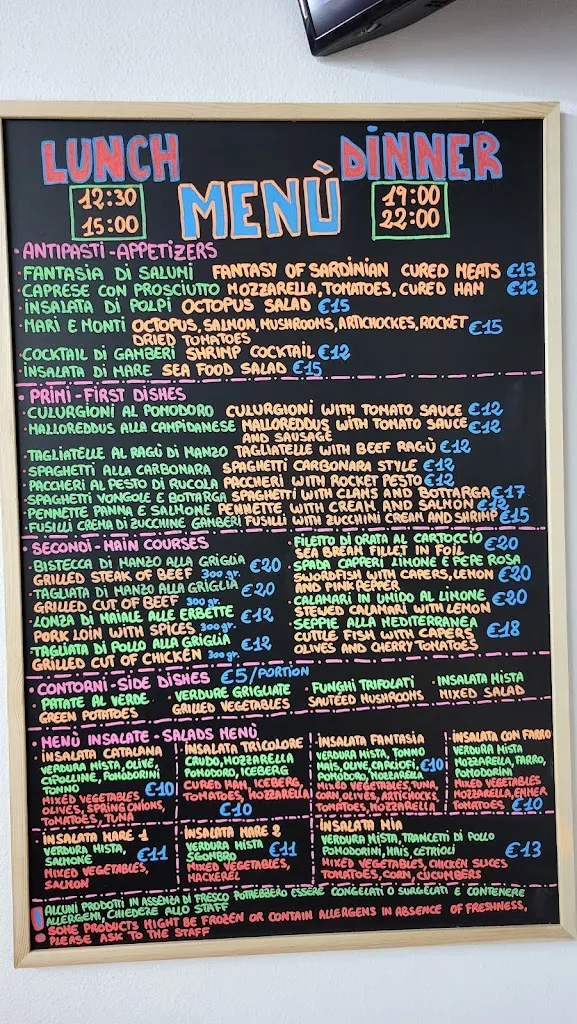 LUNCH
DINNER
12:30
15:00
MENÙ
19:00
22:00
· ANTIPASTI - APPETIZERS
· FANTASIA DI SALUMI FANTASY OF SARDINIAN CURED MEATS €13
· CAPRESE CON PROSCIUTTO MOZZARELLA, TOMATOES, CURED HAM €12
· INSALATA DI POLPI OCTOPUS SALAD €15
· MARI E MONTI OCTOPUS, SALMON, MUSHROOMS, ARTICHOCKES, ROCKET €15
DRIED TOMATOES
· COCKTAIL DI GAMBERI SHRIMP COCKTAIL €12
· INSALATA DI MARE SEA FOOD SALAD €15
· PRIMI - FIRST DISHES
· CULURGIONI AL POMODORO CULURGIONI WITH TOMATO SAUCE €12
· MALLOREDDUS ALLA CAMPIDANESE MALLOREDDUS WITH TOMATO SAUCE €12
AND SAUSAGE
· TAGLIATELLE AL RAGÙ DI MANZO TAGLIATELLE WITH BEEF RAGÙ €12
· SPAGHETTI ALLA CARBONARA SPAGHETTI CARBONARA STYLE €12
· PACCHERI AL PESTO DI RUCOLA PACCHERI WITH ROCKET PESTO €12
· SPAGHETTI VONGOLE E BOTTARGA SPAGHETTI WITH CLAMS AND BOTTARGA €17
· PENNETTE PANNA E SALMONE PENNETTE WITH CREAM AND SALMON €12
· FUSILLI CREMA DI ZUCCHINE GAMBERI FUSILLI WITH ZUCCHINI CREAM AND SHRIMP €15
· SECONDI - MAIN COURSES
· BISTECCA DI MANZO ALLA GRIGLIA €20
GRILLED STEAK OF BEEF 300 gr.
· TAGLIATA DI MANZO ALLA GRIGLIA €20
GRILLED CUT OF BEEF 300 gr.
· LONZA DI MAIALE ALLE ERBETTE €12
PORK LOIN WITH SPICES 300 gr.
· TAGLIATA DI POLLO ALLA GRIGLIA €12
GRILLED CUT OF CHICKEN 300 gr.
· FILETTO DI ORATA AL CARTOCCIO €20
SEA BREAM FILLET IN FOIL
· SPADA CAPPERI LIMONE E PEPE ROSA
SWORDFISH WITH CAPERS, LEMON €20
AND PINK PEPPER
· CALAMARI IN UMIDO AL LIMONE €20
STEWED CALAMARI WITH LEMON
· SEPPIE ALLA MEDITERRANEA
CUTTLE FISH WITH CAPERS €18
OLIVES AND CHERRY TOMATOES
· CONTORNI - SIDE DISHES €5/PORTION
· PATATE AL VERDE
GREEN POTATOES
· VERDURE GRIGLIATE
GRILLED VEGETABLES
· FUNGHI TRIFOLATI
SAUTEED MUSHROOMS
· INSALATA MISTA
MIXED SALAD
· MENÙ INSALATE - SALADS MENÙ
· INSALATA CATALANA
VERDURA MISTA, OLIVE,
CIPOLLINE, POMODORINI
TONNO €10
MIXED VEGETABLES
OLIVES, SPRING ONIONS,
TOMATOES, TUNA
· INSALATA TRICOLORE
CRUDO, MOZZARELLA
POMODORO, ICEBERG
CURED HAM, ICEBERG,
TOMATOES, MOZZARELLA
€10
· INSALATA FANTASIA
VERDURA MISTA, TONNO
MAIS, OLIVE, CARCIOFI, €10
POMODORO, MOZZARELLA
MIXED VEGETABLES, TUNA,
CORN, OLIVES, ARTICHOCKS
TOMATOES, MOZZARELLA
· INSALATA CON FARRO
VERDURA MISTA
MOZZARELLA, FARRO,
POMODORINI
MIXED VEGETABLES
MOZZARELLA, EMMER
TOMATOES €10
· INSALATA MARE 1
VERDURA MISTA,
SALMONE €11
MIXED VEGETABLES,
SALMON
· INSALATA MARE 2
VERDURA MISTA
SGOMBRO €11
MIXED VEGETABLES,
MACKEREL
· INSALATA MIA
VERDURA MISTA, TRANCETTI DI POLLO
POMODORINI, MAIS, CETRIOLI €13
MIXED VEGETABLES, CHICKEN SLICES
TOMATOES, CORN, CUCUMBERS
ALCUNI PRODOTTI IN ASSENZA DI FRESCO POTREBBERO ESSERE CONGELATI O SURGELATI E CONTENERE
ALLERGENI, CHIEDERE ALLO STAFF
SOME PRODUCTS MIGHT BE FROZEN OR CONTAIN ALLERGENS IN ABSENCE OF FRESHNESS,
PLEASE ASK TO THE STAFF